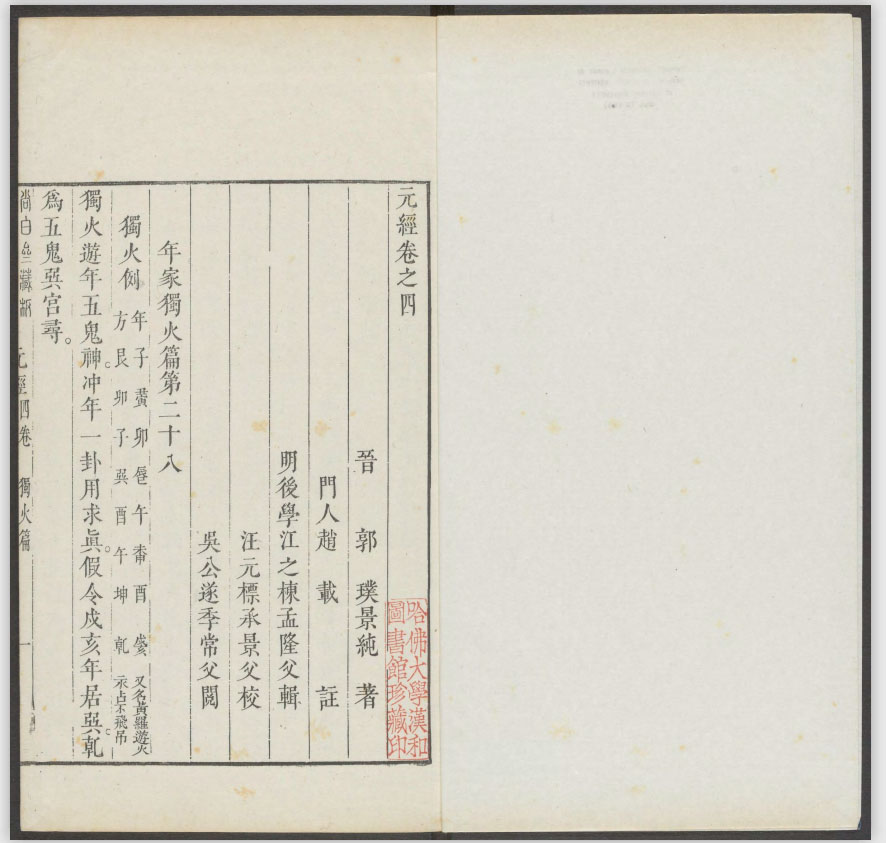 元經卷之四
晉 郭 璞景純 著
門人趙 載 註
明後學江之棟孟隆父輯
汪元標承景父校
吳公遂季常父閱
年家獨火篇第二十八
獨火例
年子丑寅卯辰巳午未申酉戌亥
方艮卯子巽酉午坤乾
又名黃羅遊火
示占不飛吊
獨火遊年五鬼神。冲年一卦用求眞。假令戌亥年居巽。乾
爲五鬼巽宮尋。
尚白 藏板 元經四卷 獨火篇 一
哈佛大學漢和
圖書館珍藏印